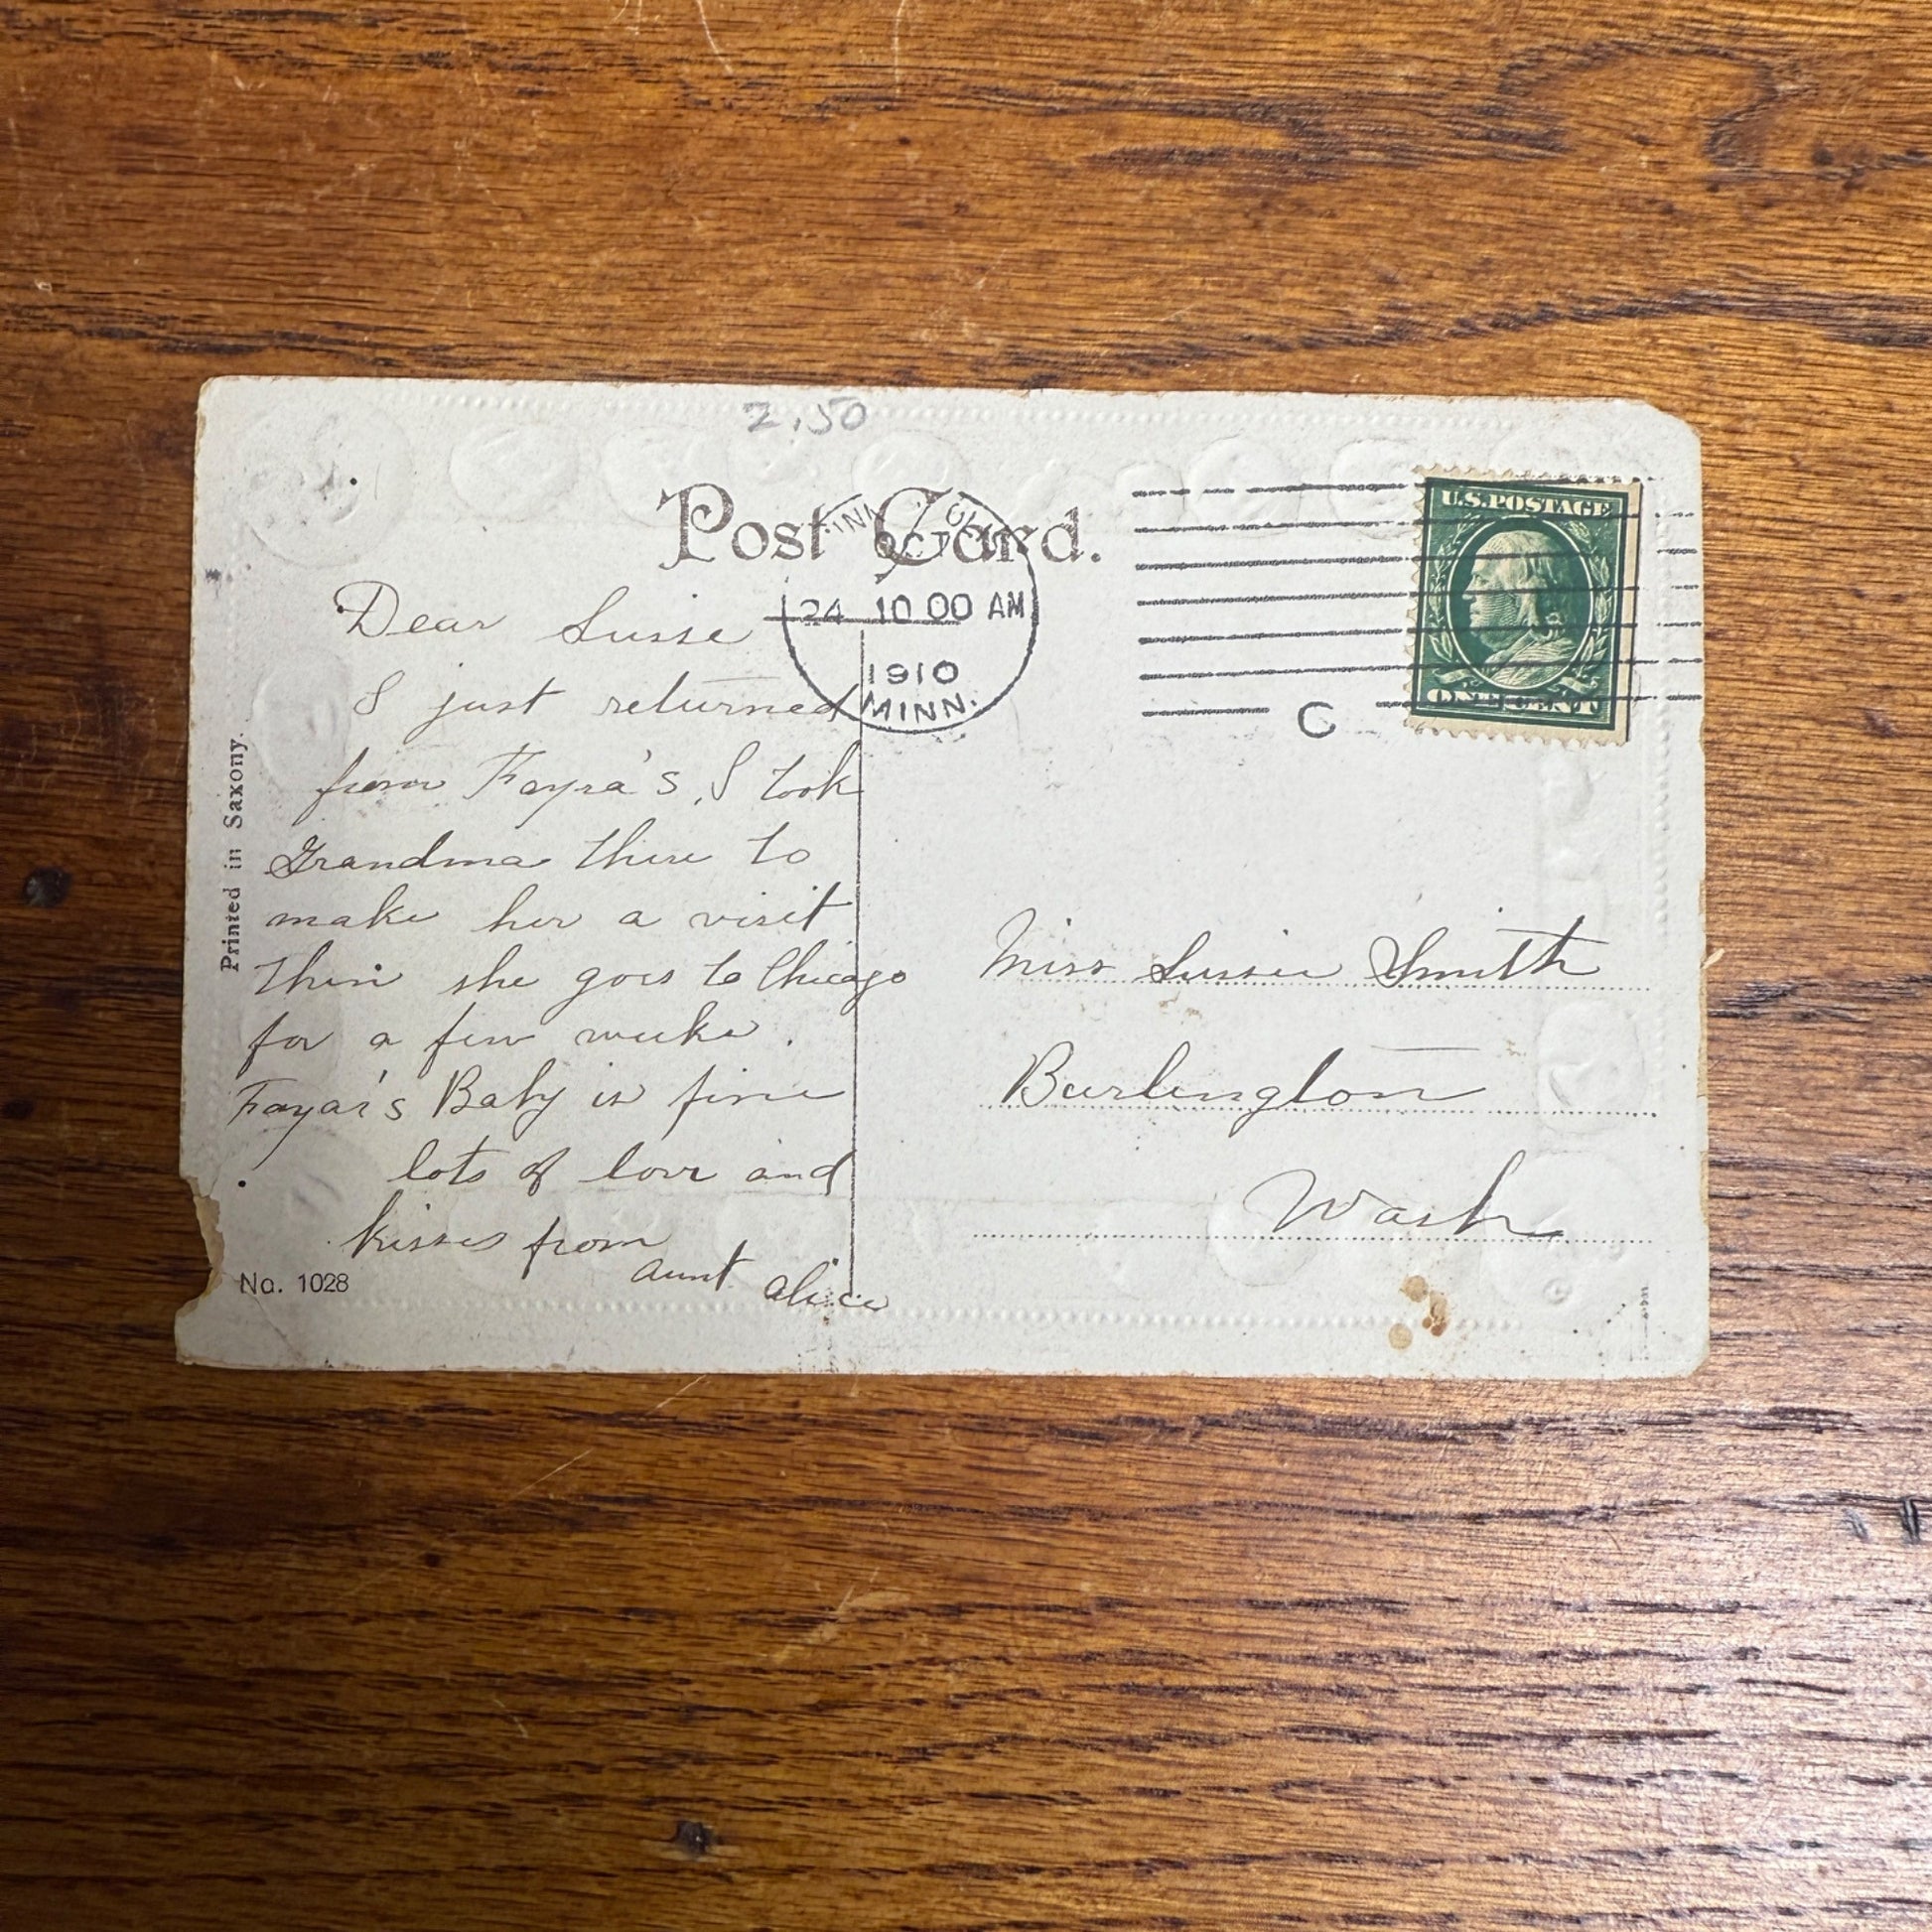 2.50
Post Card.
OCT
24 10 00 AM
1910
MINN.
C
U.S.POSTAGE
ONE CENT
Dear Susie
I just returned
from Fayra's, I took
Grandma there to
make her a visit
then she goes to Chicago
for a few weeks.
Fayar's Baby is fine
lots of love and
kisses from
aunt alice
Miss Sussie Smith
Burlington
Wash
Printed in Saxony.
No. 1028